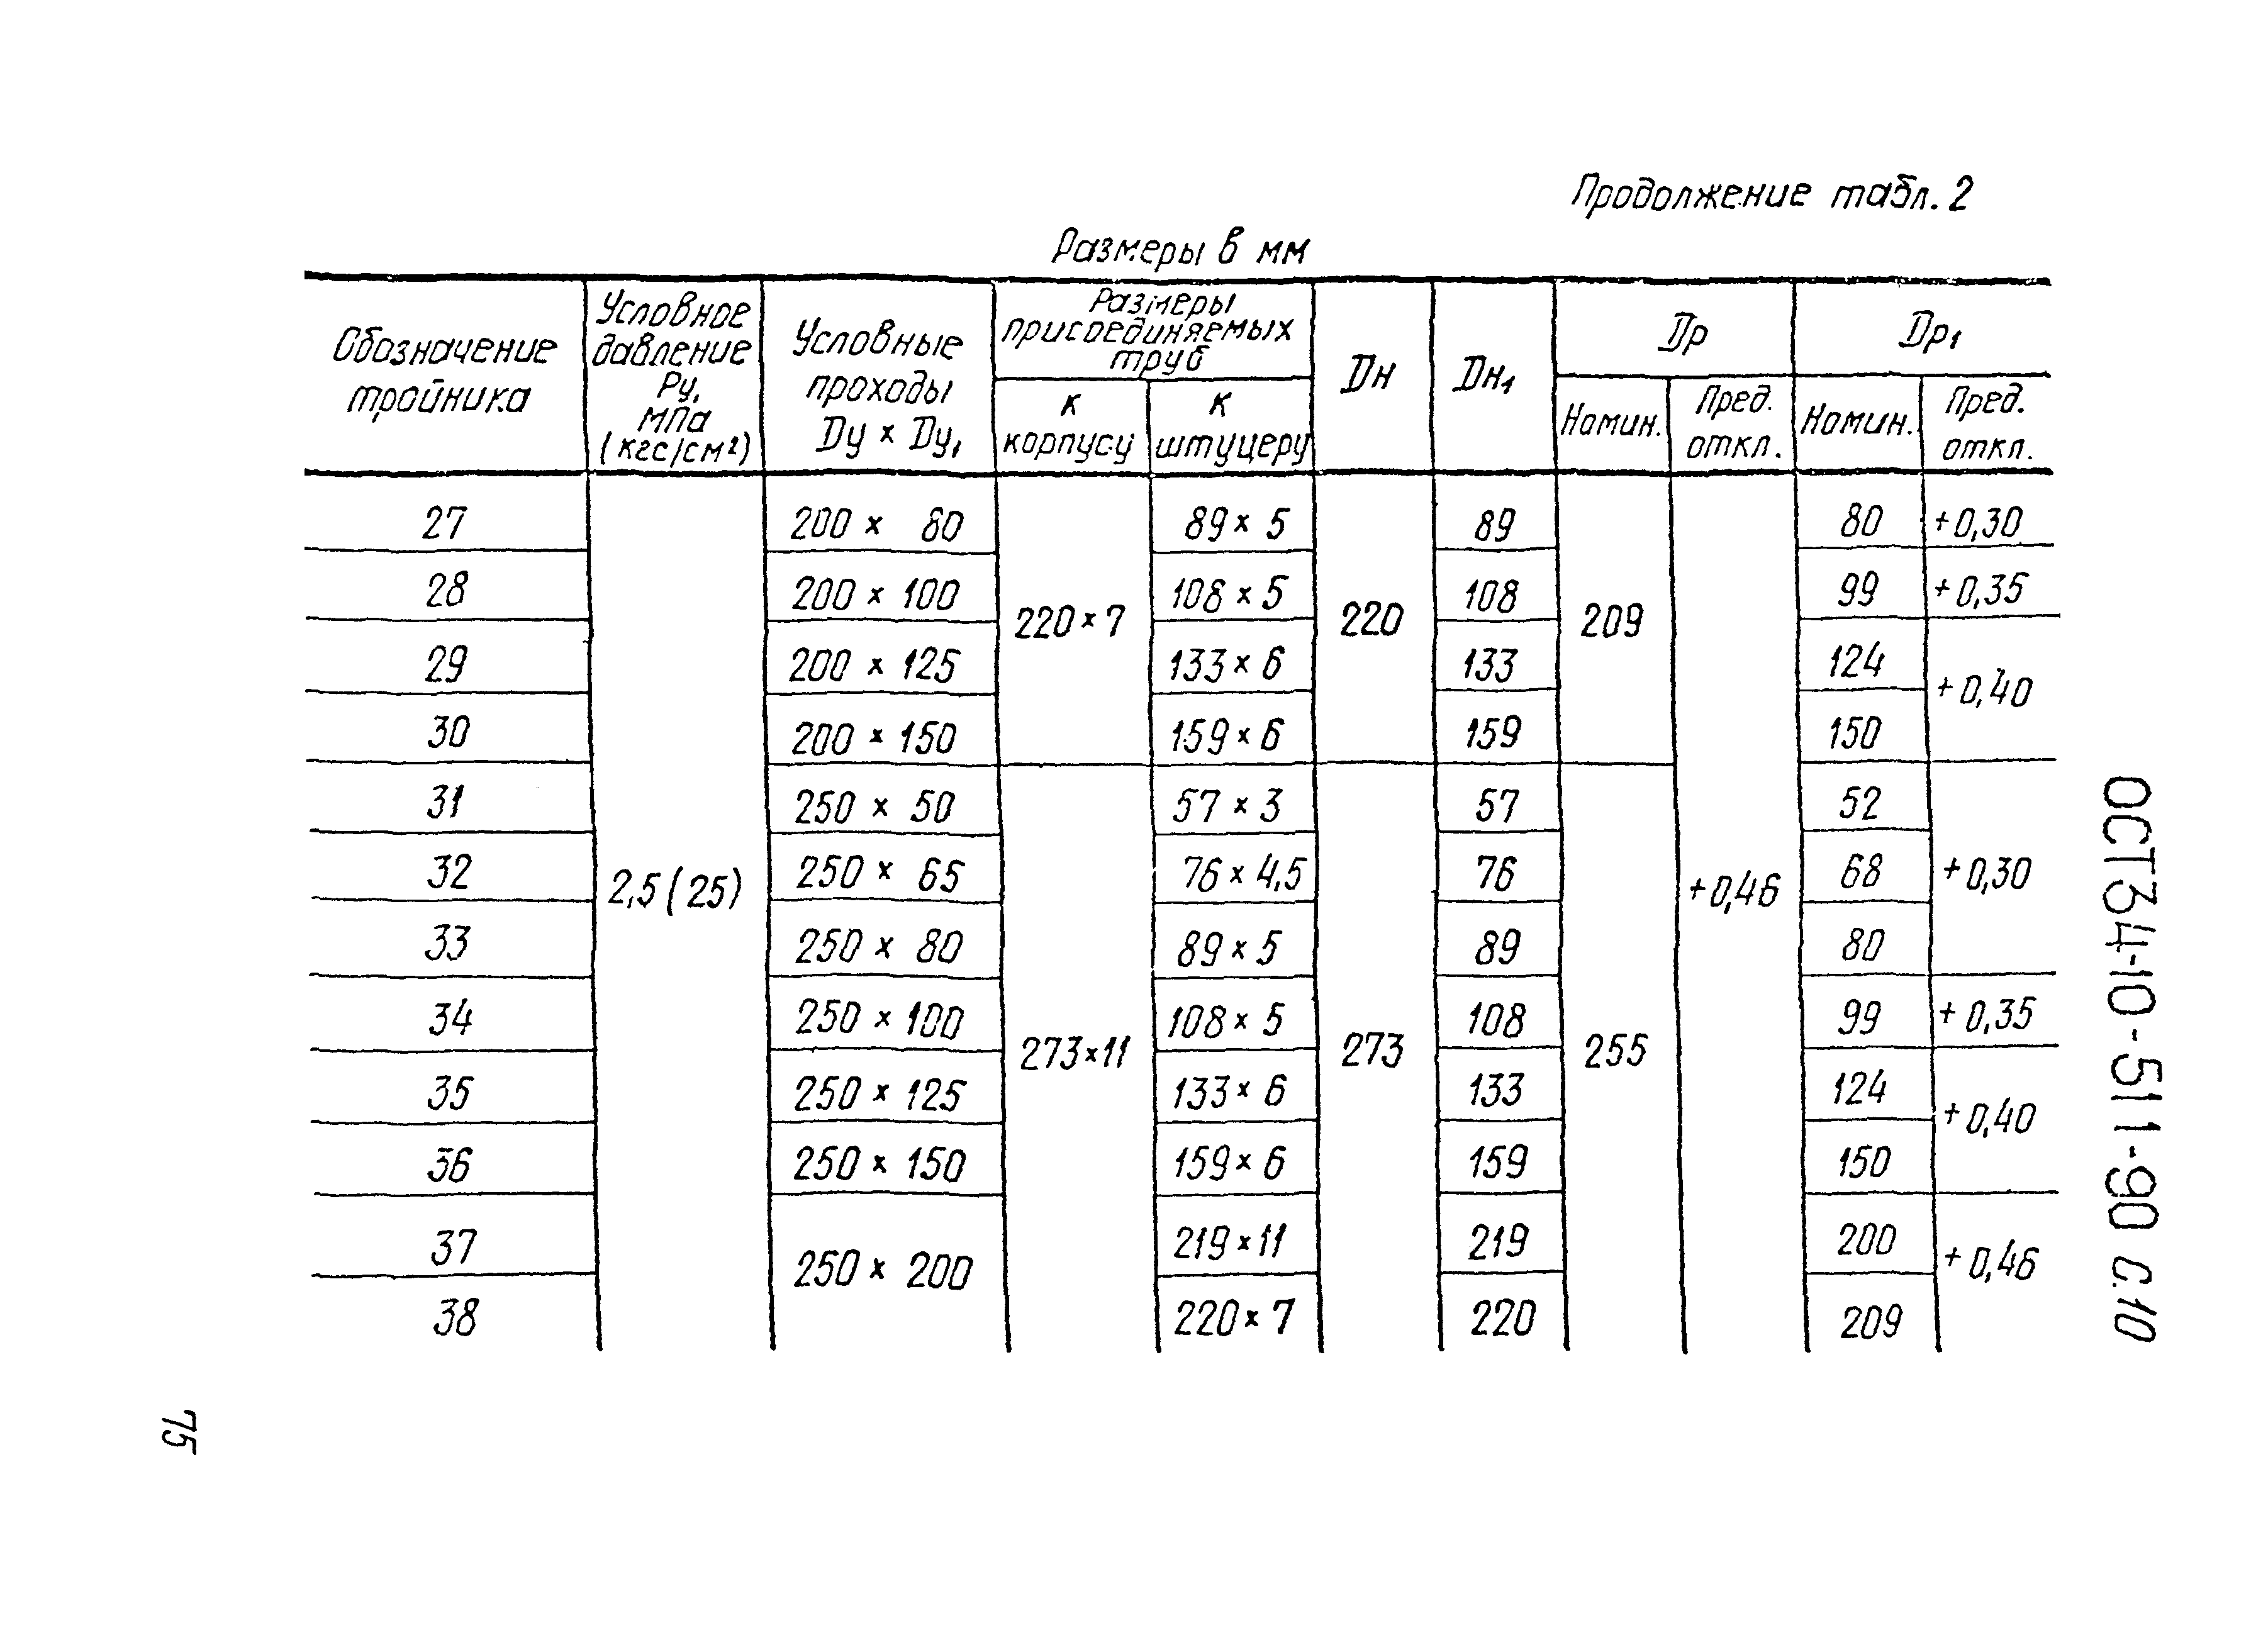 Продолжение табл. 2
Размеры в мм
Обозначение тройника | Условное давление Ру, МПа (кгс/см²) | Условные проходы Dу × Dу₁ | Размеры присоединяемых труб | Dн | Dн₁ | Dр | Dр₁
к корпусу | к штуцеру | Номин. | Пред. откл. | Номин. | Пред. откл.
27 | 200 × 80 | 89 × 5 | 89 | 80 | +0,30
28 | 200 × 100 | 108 × 5 | 108 | 99 | +0,35
220 × 7 | 220 | 209
29 | 200 × 125 | 133 × 6 | 133 | 124
+0,40
30 | 200 × 150 | 159 × 6 | 159 | 150
31 | 250 × 50 | 57 × 3 | 57 | 52
32 | 250 × 65 | 76 × 4,5 | 76 | 68 | +0,30
2,5 (25) | +0,46
33 | 250 × 80 | 89 × 5 | 89 | 80
34 | 250 × 100 | 108 × 5 | 108 | 99 | +0,35
273 × 11 | 273 | 255
35 | 250 × 125 | 133 × 6 | 133 | 124
+0,40
36 | 250 × 150 | 159 × 6 | 159 | 150
37 | 219 × 11 | 219 | 200
250 × 200 | +0,46
38 | 220 × 7 | 220 | 209
ОСТ34-10-511-90 С.10
75